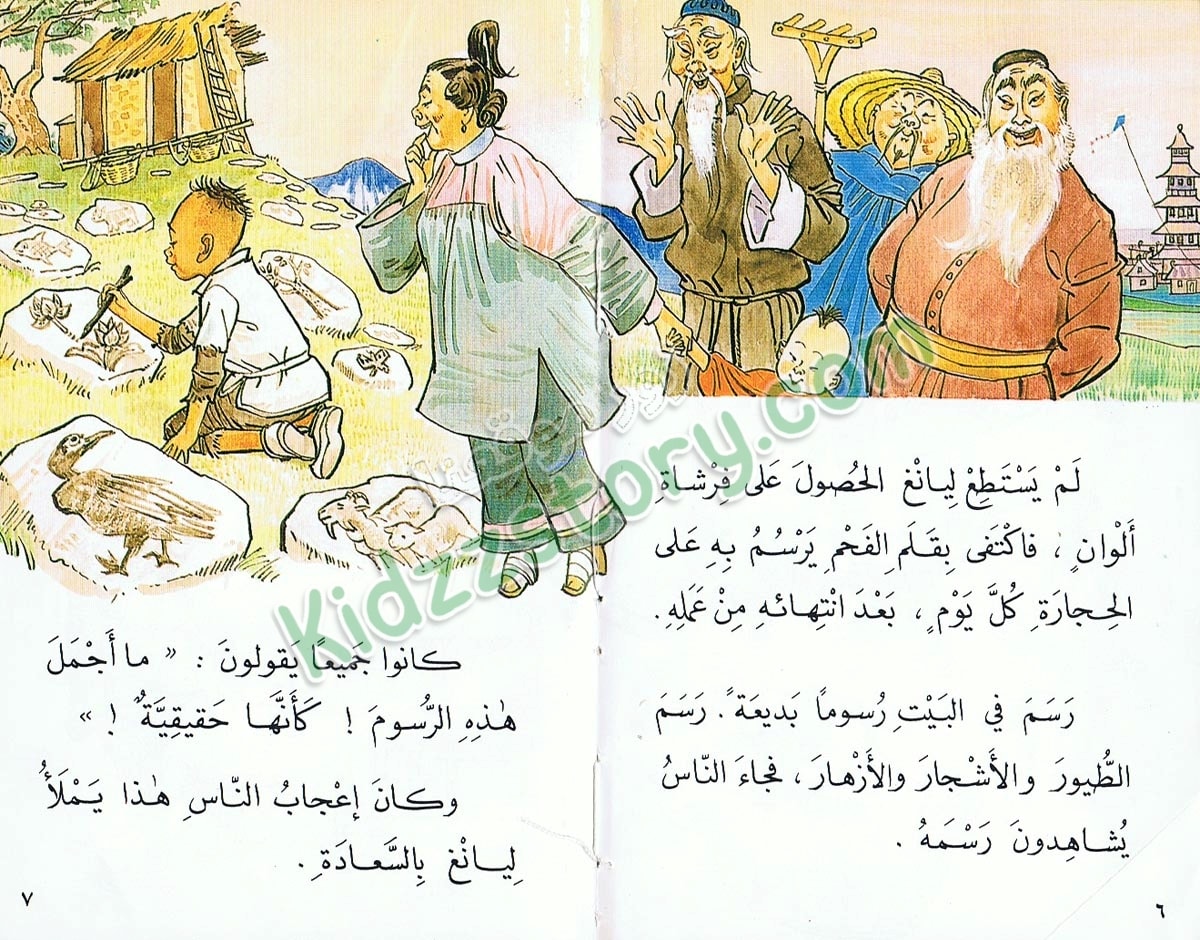 لَمْ يَسْتَطِعْ لِيانْغ الحُصولَ عَلى فِرْشاةِ
أَلْوانٍ ، فاكْتَفى بِقَلَمِ الفَحْمِ يَرْسُمُ بِهِ عَلى
الحِجارَةِ كُلَّ يَوْمٍ ، بَعْدَ انْتِهائهِ مِنْ عَمَلِهِ.
رَسَمَ في البَيْتِ رُسوماً بَديعَةً. رَسَمَ
الطُّيورَ والأَشْجارَ والأَزْهارَ ، فَجاءَ النّاسُ
يُشاهِدونَ رَسْمَهُ .
٦
كانوا جَميعًا يَقولونَ : « ما أَجْمَلَ
هٰذِهِ الرُّسومَ ! كَأَنَّها حَقيقِيَّةٌ ! »
وكانَ إعْجابُ النّاسِ هٰذا يَمْلَأُ
لِيانْغ بِالسَّعادَةِ .
٧
Kidzzstory.com